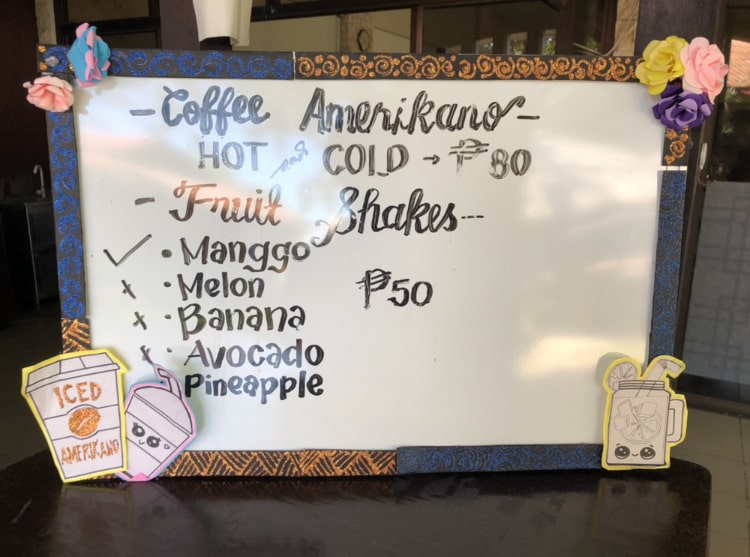 - Coffee Amerikano -
HOT and COLD → ₱80
- Fruit Shakes---
✓ • Manggo
x • Melon
x • Banana
x • Avocado
Pineapple
₱50
ICED
AMERIKANO